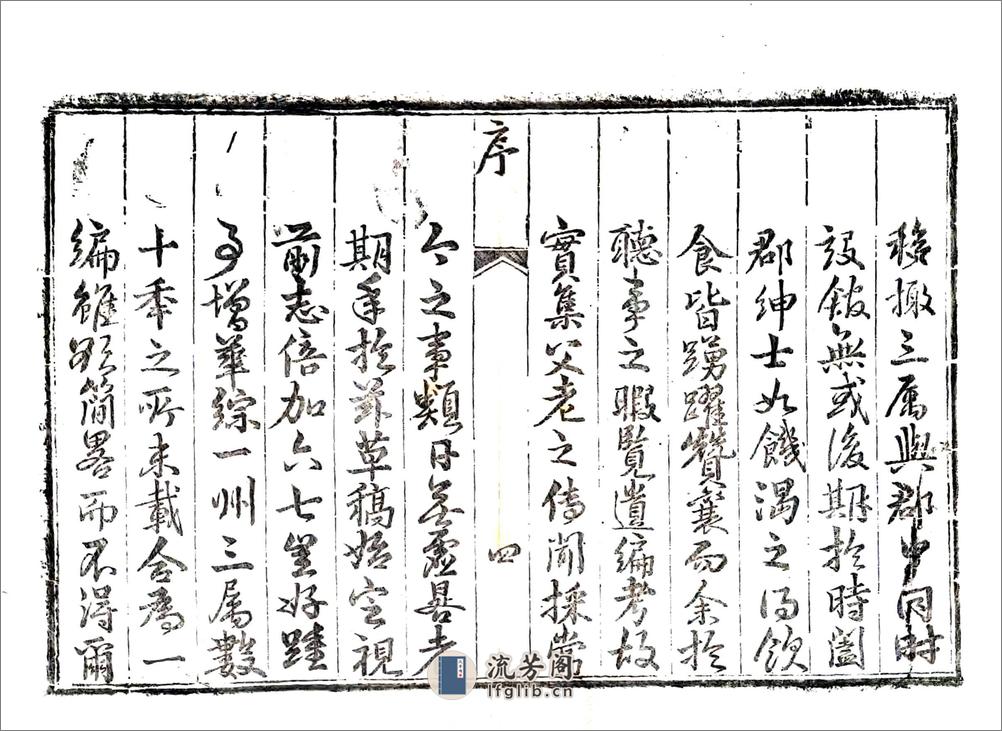 移檄三属與郡中同時
設館無或後期於時闔
郡紳士如饑渴之得飲
食皆踴躍贊襄而余於
聽事之暇覽遺編考故
實集父老之傳聞採當
序
四
今之事類日無虛晷者
期年於茲草稿始定視
前志倍加六七豈好踵
事增華綜一州三属數
十年之所未載合為一
編雖欲簡畧而不得爾
流芳阁
lfglib.cn